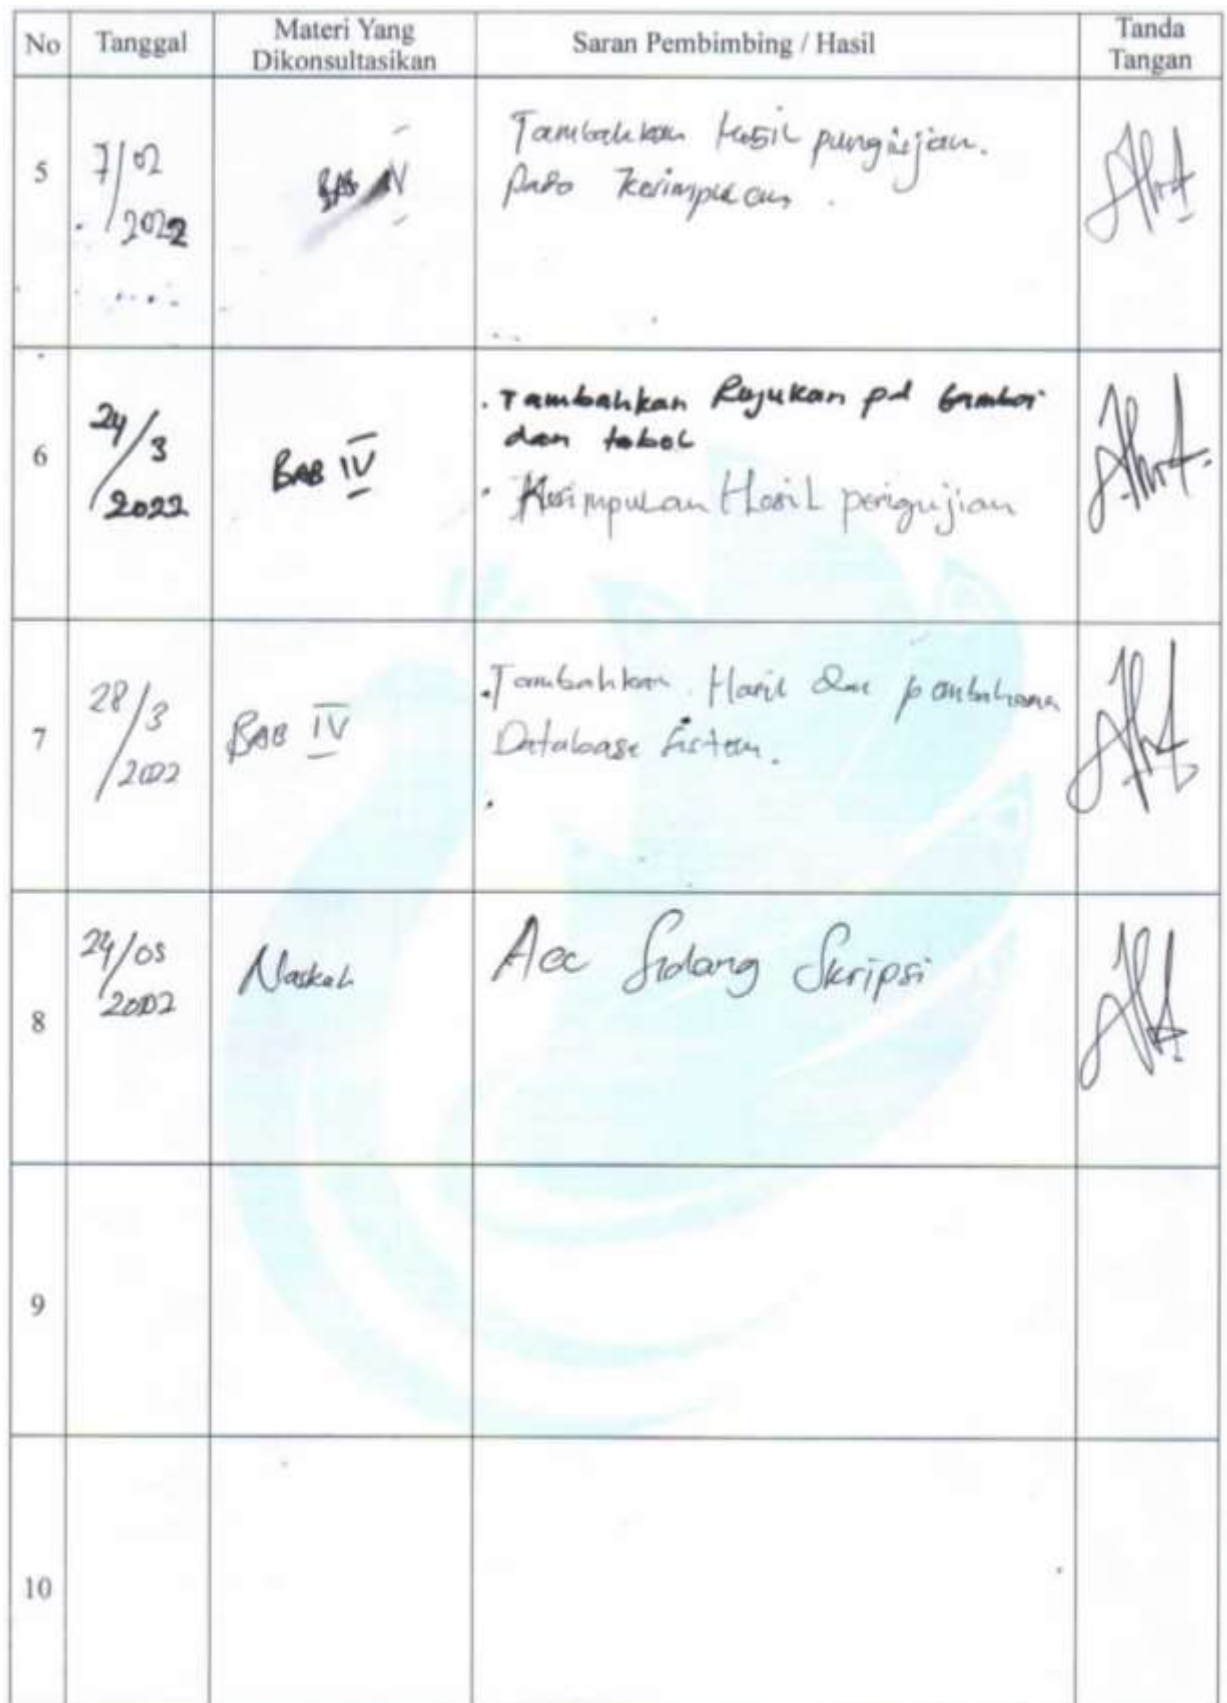 No Tanggal Materi Yang Dikonsultasikan Saran Pembimbing / Hasil Tanda Tangan
5 7/02 2022 BAB IV Tambahkan Hasil pengujian.
pada Kesimpulan.
6 24/3 2022 BAB IV . Tambahkan Rujukan pd Gambar
dan tabel
. Kesimpulan Hasil pengujian
7 28/3 2022 BAB IV . Tambahkan Hasil dan pembahasan
Database Sistem.
8 24/05 2022 Naskah Acc Sidang Skripsi
9
10